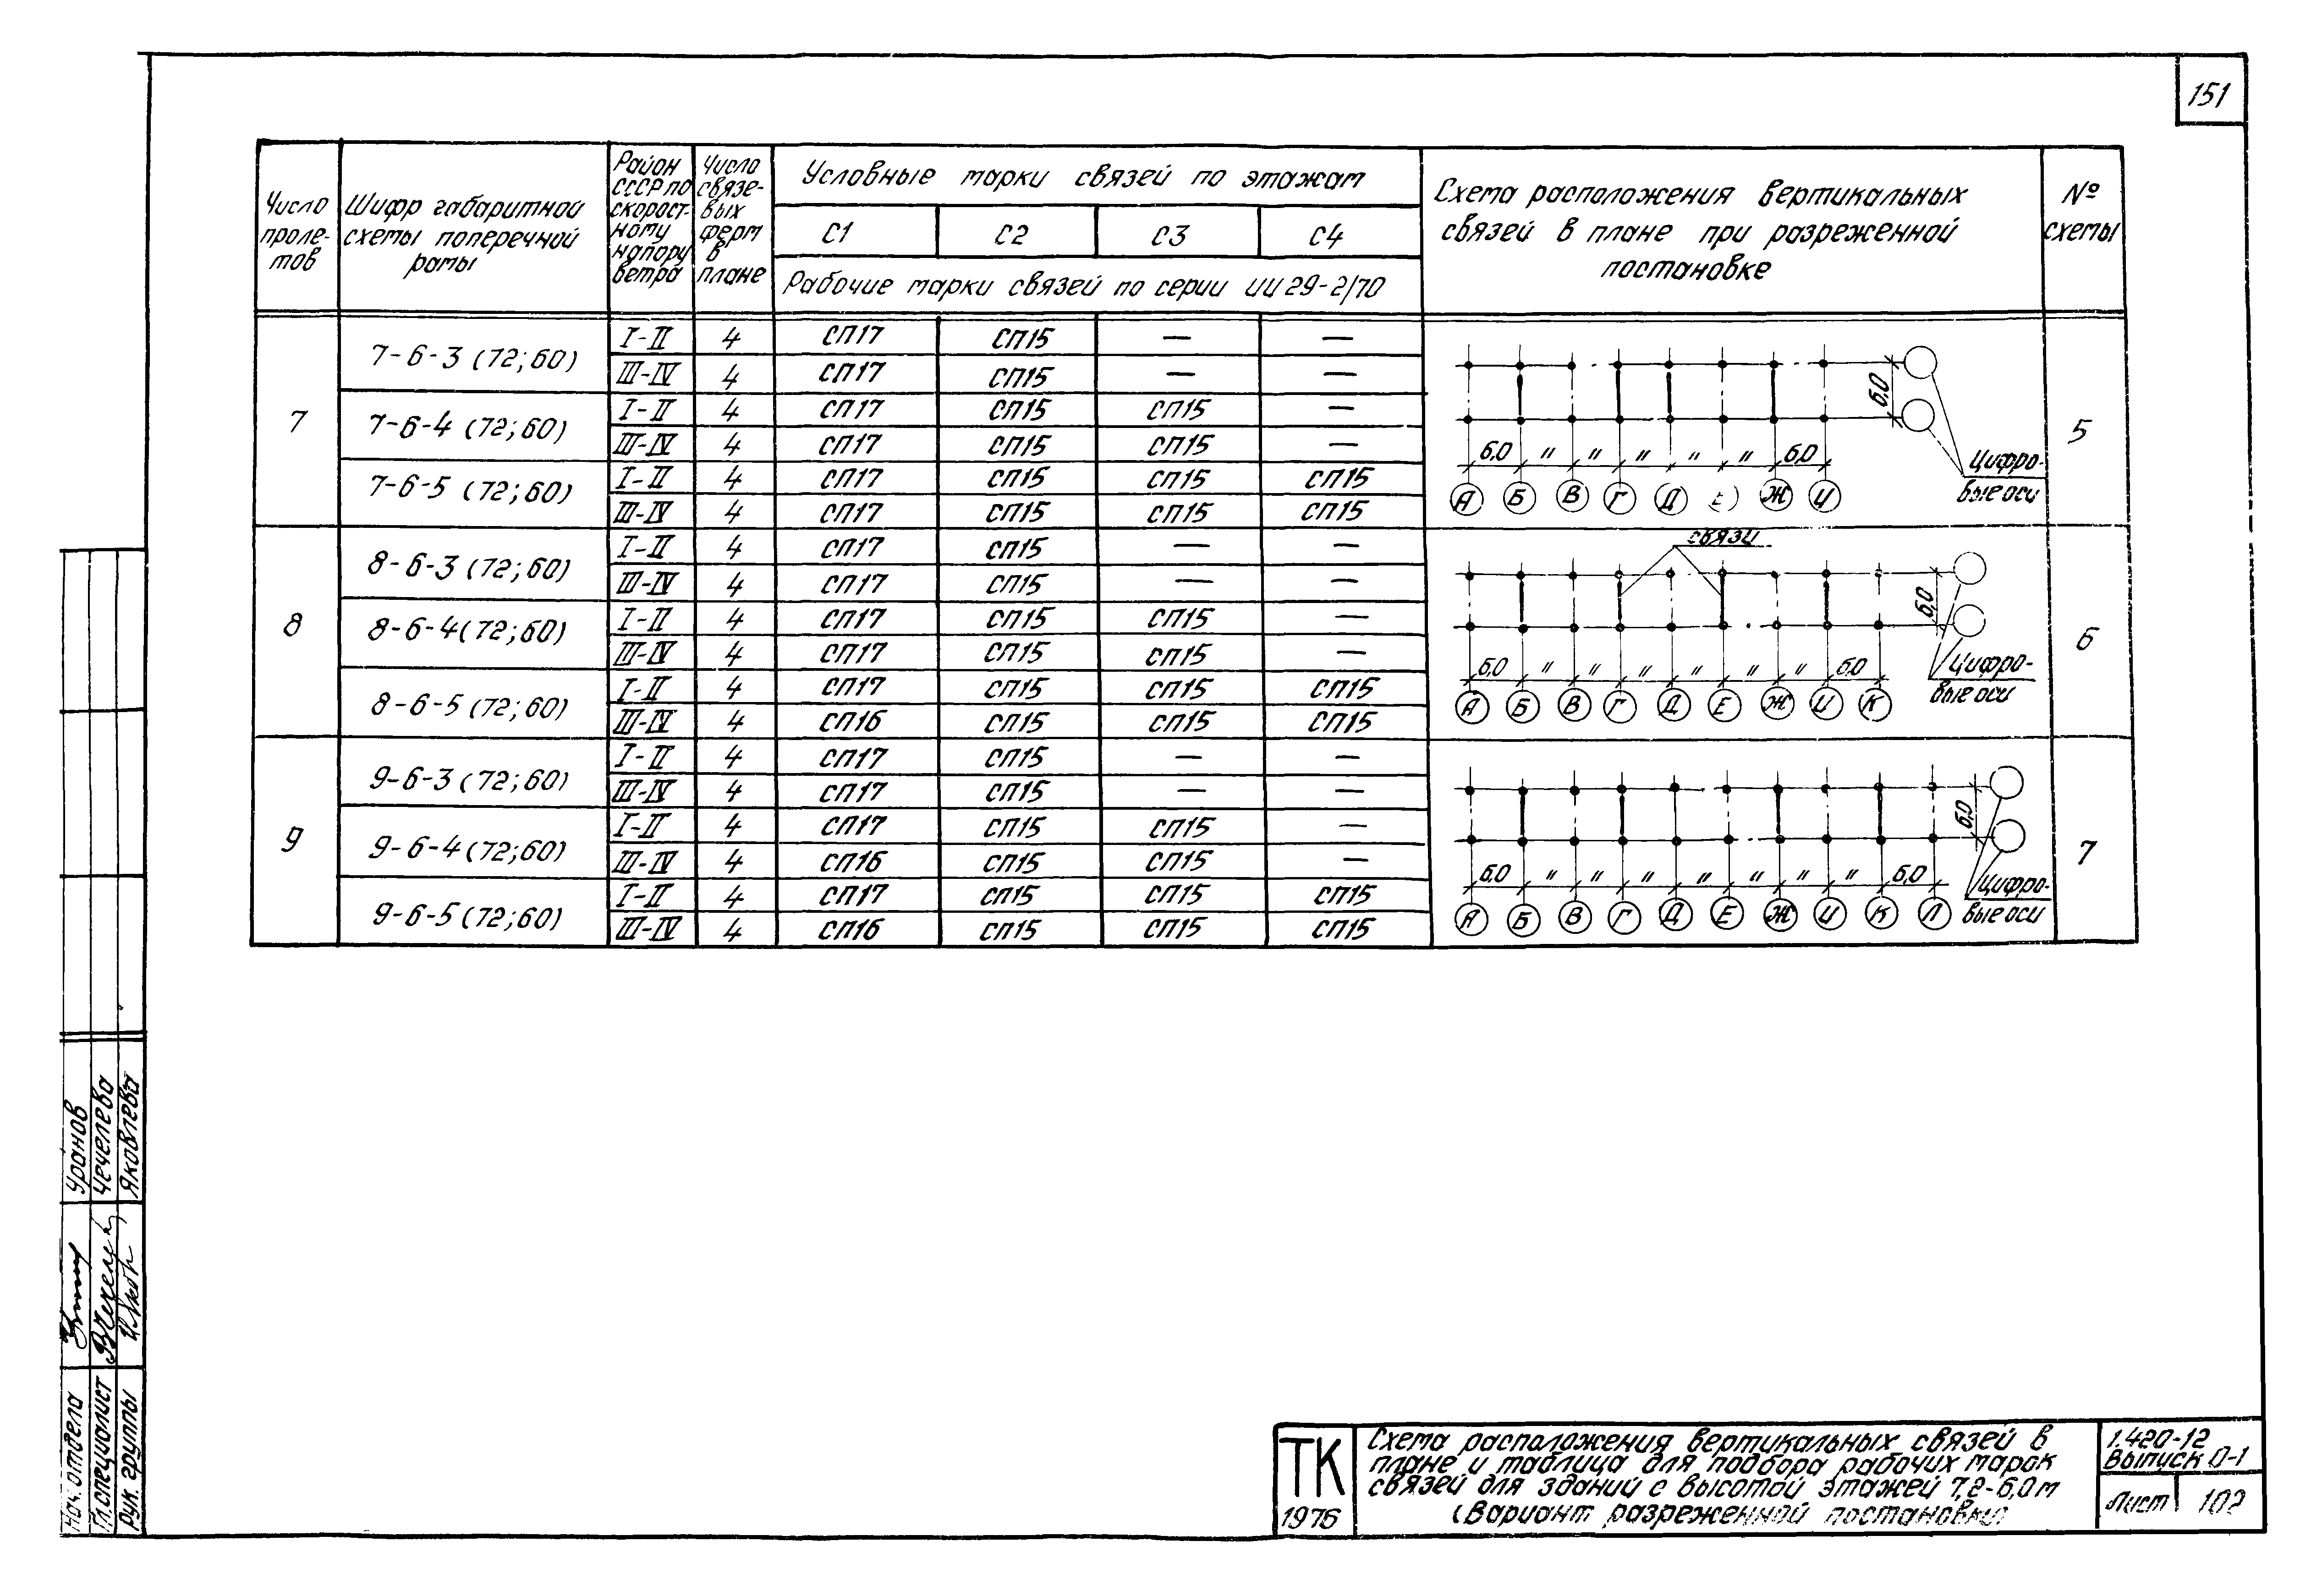 151
Число проле- тов
Шифр габаритной схемы поперечной рамы
Район СССР по скорост- ному напору ветра
Число связе- вых ферм в плане
Условные марки связей по этажам
С1 С2 С3 С4
Рабочие марки связей по серии ИИ 29-2/70
Схема расположения вертикальных связей в плане при разреженной постановке
№ схемы
7
7-6-3 (72;60)
I-II 4 СП17 СП15 — —
III-IV 4 СП17 СП15 — —
7-6-4 (72;60)
I-II 4 СП17 СП15 СП15 —
III-IV 4 СП17 СП15 СП15 —
7-6-5 (72;60)
I-II 4 СП17 СП15 СП15 СП15
III-IV 4 СП17 СП15 СП15 СП15
6,0
6,0 " " " " " 6,0
А Б В Г Д Е Ж И
Цифро-
вые оси
5
8
8-6-3 (72;60)
I-II 4 СП17 СП15 — —
III-IV 4 СП17 СП15 — —
8-6-4 (72;60)
I-II 4 СП17 СП15 СП15 —
III-IV 4 СП17 СП15 СП15 —
8-6-5 (72;60)
I-II 4 СП17 СП15 СП15 СП15
III-IV 4 СП16 СП15 СП15 СП15
связи
6,0
6,0 " " " " " " 6,0
А Б В Г Д Е Ж И К
Цифро-
вые оси
6
9
9-6-3 (72;60)
I-II 4 СП17 СП15 — —
III-IV 4 СП17 СП15 — —
9-6-4 (72;60)
I-II 4 СП17 СП15 СП15 —
III-IV 4 СП16 СП15 СП15 —
9-6-5 (72;60)
I-II 4 СП17 СП15 СП15 СП15
III-IV 4 СП16 СП15 СП15 СП15
6,0
6,0 " " " " " " " 6,0
А Б В Г Д Е Ж И К Л
Цифро-
вые оси
7
Нач. отдела Уранов
Гл. специалист Чечелева
Рук. группы Яковлева
ТК
1976
Схема расположения вертикальных связей в
плане и таблица для подбора рабочих марок
связей для зданий с высотой этажей 7,2-6,0 м
(Вариант разреженной постановки)
1.420-12
Выпуск 0-1
Лист 102